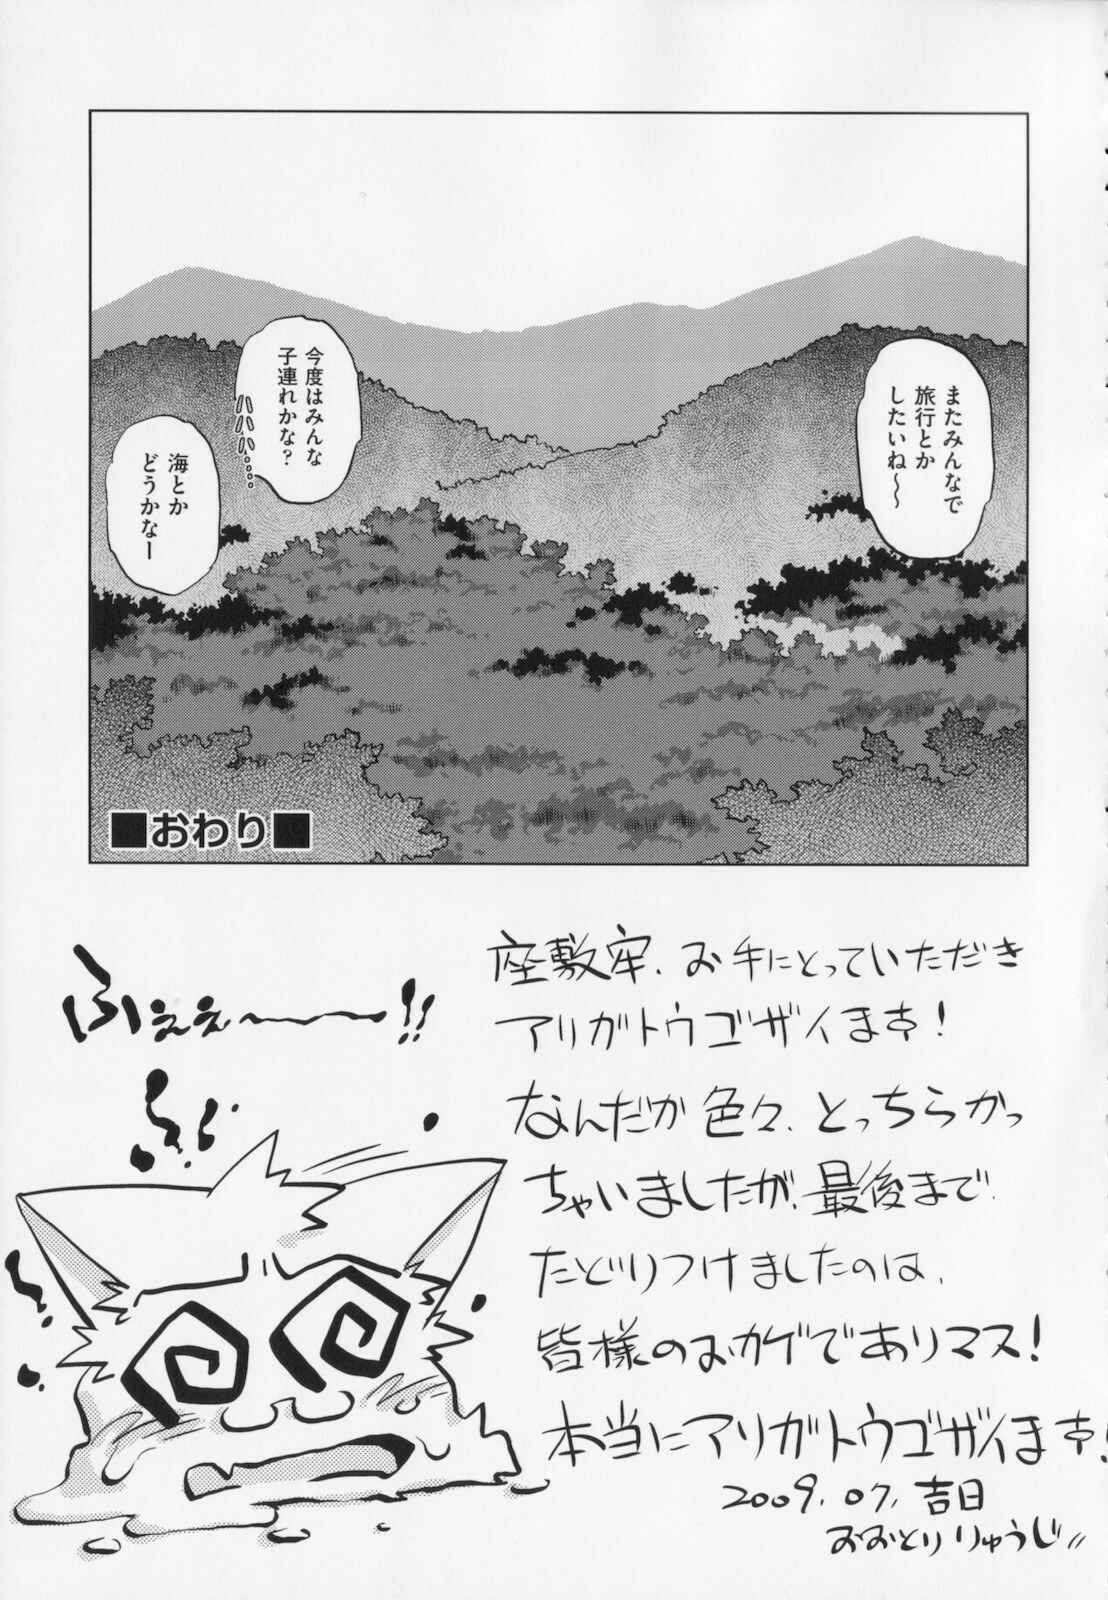 またみんなで
旅行とか
したいね～
今度はみんな
子連れかな？
ハハハ……
海とか
どうかなー
■おわり■
ふぇぇ〜〜!!
座敷牢、お手にとっていただき
アリガトウゴザイます!
なんだか色々、とっちらかっ
ちゃいましたが、最後まで
たどりつけましたのは、
皆様のおカゲでありマス!
本当にアリガトウゴザイます!
2009.07.吉日
おおとりりゅうじ